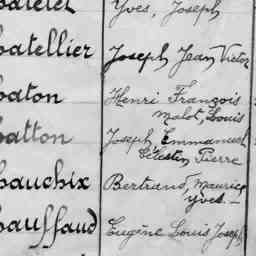 Yves, Joseph
atellier Joseph Jean Victor
aton Henri François
malo, Louis
atton Joseph Emmanuel
Célestin Pierre
auchix Bertrand, Maurice
Yves. —
auffaud Eugène Louis Joseph